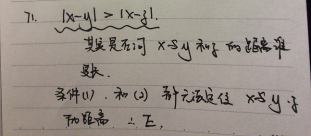 71. |x-y| > |x-z|.
其实是在问 x与y 和z 的距离谁
更长.
条件(1) 和(2) 都无法定位 x与y.z
的距离 ∴E.